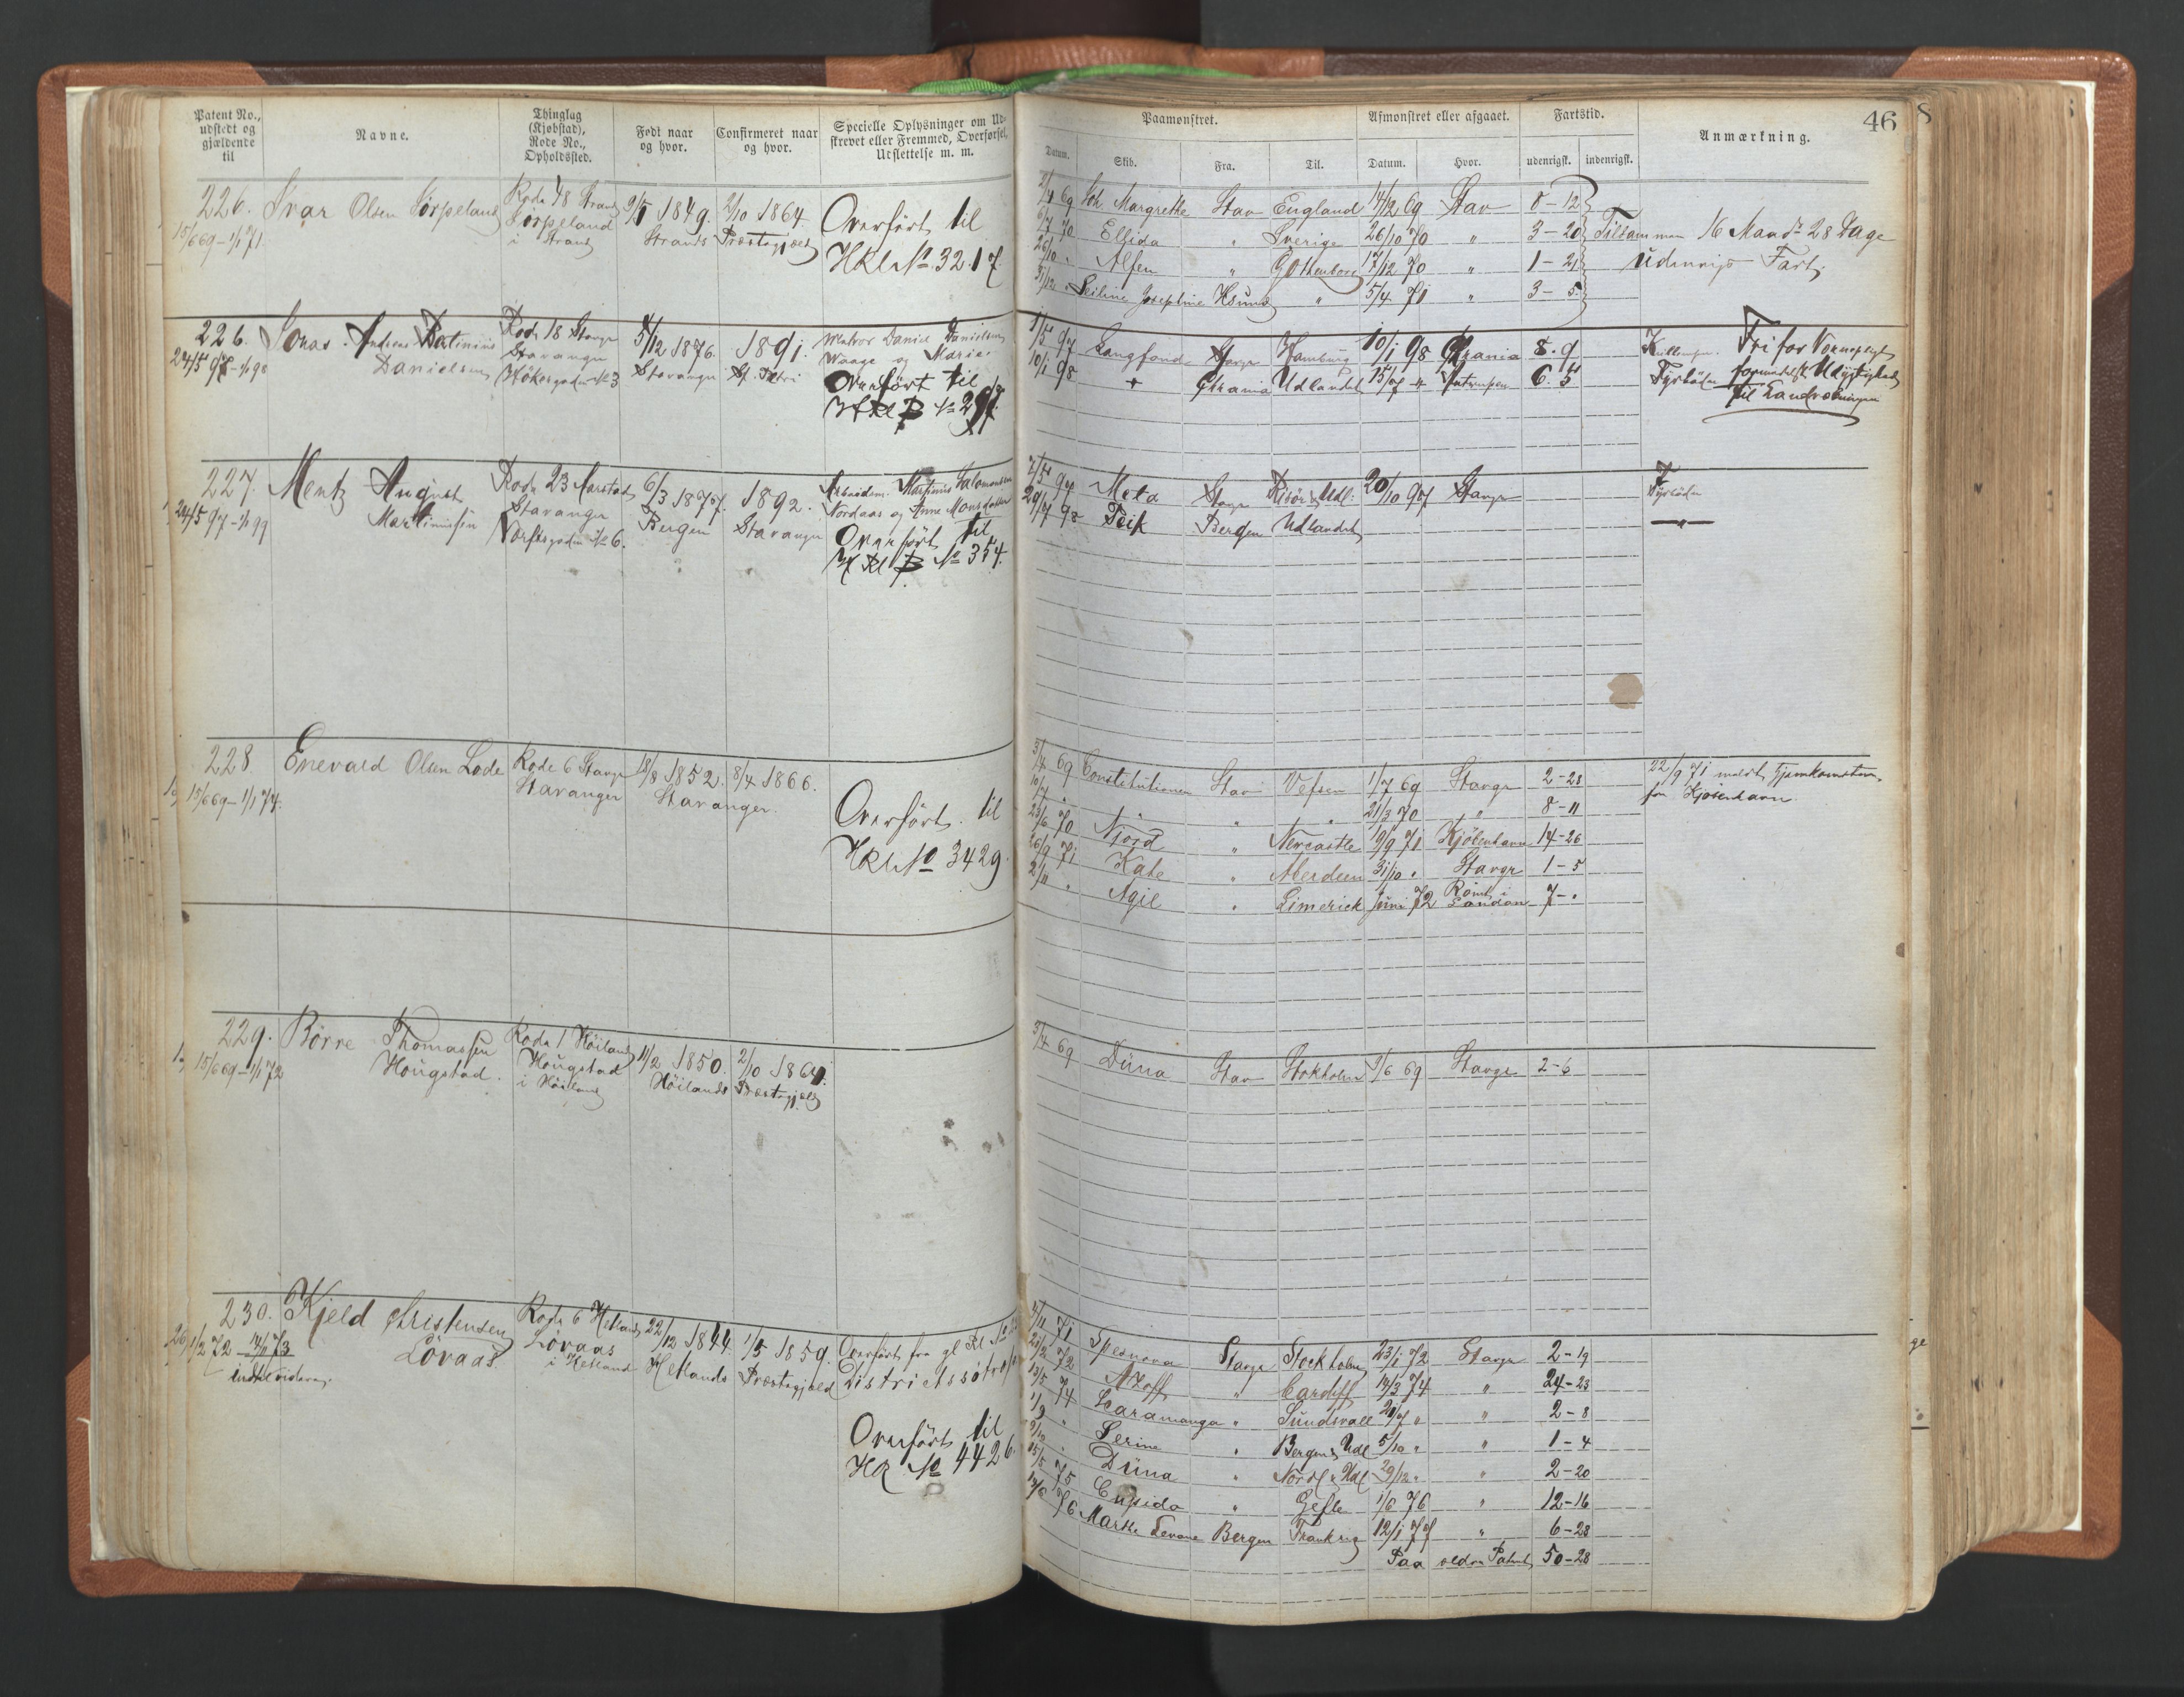 Patent No., udstedt og gjældende til
Navne.
Thinglag (Kjøbstad), Rode No., Opholdssted.
Født naar og hvor.
Confirmeret naar og hvor.
Specielle Oplysninger om Udskrevet eller Fremmed, Overførsel, Udslettelse m. m.
226. Ivar Olsen Jörpeland
15/6 69 – 1/1 71
Rode 48 Strand
Jörpeland
i Strand
1849.
Strands
2/10 1864.
Præstegjæld
Overført til
HRl. No. 3217.
226. Jonas Andreas Batinius
Danielsen
24/5 97 – 1/1 98
Rode 18 Stavgr
Stavanger
Hökergaden No 3
5/12 1876.
Stavanger
1891.
St. Petri
Matros Daniel Danielsen
Waage og Marie.
Overført til
H Rl B No 297.
227. Mentz August
Martiniusen
24/5 97 – 1/1 99
Rode 23 Aarstad
Stavanger
No 6.
6/3 1877.
Bergen
1892.
Stavanger
Arbeidsm. Martinius Salomonsen
Nordaas og Anne Monsdatter
Overført til
H Rl B No 354.
228 Enevald Olsen Lode
15/6 69 – 1/1 74.
Rode 6 Stavgr
Stavanger
18/8 1852.
8/4 1866.
Stavanger.
Overført til
HRl No 3429.
229. Börre Thomassen
Hougstad.
15/6 69 – 1/1 72
Rode 1 Höiland
Hougstad
i Höiland
11/2 1850.
Höilands
2/10 1864.
Præstegjæld
230. Kjeld Christensen
Lövaas
1/2 72 – 14/1 73
indtil videre.
Rode 6 Hetland
Lövaas
i Hetland
22/12 1844.
Hetlands
1/5 1859.
Præstegjæld
Overført fra gl Rl No
Distriktssötropper
Overført til
HR No 4426.
46
Paamønstret.
Afmønstret eller afgaaet.
Fartstid.
Anmærkning.
Datum.
Skib.
Fra.
Til.
Datum.
Hvor.
udenrigsk.
indenrigsk.
69 Margrethe Stav England 14/12 69 Stav 8 – 12
6/7 70 Ellida " Sverige 26/10 70 " 3 – 20 Tilsammen 16 Maadr 28 Dage
26/10 " Alfen " Gothenborg 17/12 70 " 1 – 21 Udenrigs Fart.
31/12 " Josephine " 5/4 71 " 3 – 5
1/5 97 Langfond Stavgr Hamburg 10/1 98 Chrania 8. 9
10/1 98 " Chrania Udlandet 15/7 " Antwerpen 6. 5
Fyrböder
Fri for Værnepligt
formedelst Udygtighed
til Landværingen
97 Meta Stavgr Risör & Udl: 20/10 97 Stavgr Fyrböder
98 Teik Bergen Udlandet — " —
3/4 69 Constitutionen Stav Vefsen 1/7 69 Stavgr 2 – 28
10/7 " " " " 21/3 70 " 8 – 11
23/6 70 Njord " Newcastle 19/9 71 Kjöbenhavn 14 – 26
71 Kate " Aberdeen 31/10 " Stavgr 1 – 5
2/11 " Agil " Limerick Juni 72 Römt i London 7 – "
22/9 71 meldt Hjemkomsten
fra Kjöbenhavn.
3/4 69 Düna Stav Stokholm 9/6 69 Stavgr 2 – 6
71 Spesnova Stavgr Stockholm 23/1 72 Stavgr 2 – 19
72 Azoff " Cardiff 14/3 74 " 24 – 23
13/5 74 Caramanga " Sundsvall 20/7 " " 2 – 8
1/9 " Serine " Bergen & Udl 5/10 " " 1 – 4
9/10 " Düna " Nordl & Udl 29/12 " " 2 – 20
15/5 75 Cupido " Gefle 1/6 76 " 12 – 16
76 Marthe Levane Bergen Frankrig 12/1 77 " 6 – 28
Paa ældre Patent 50 – 28